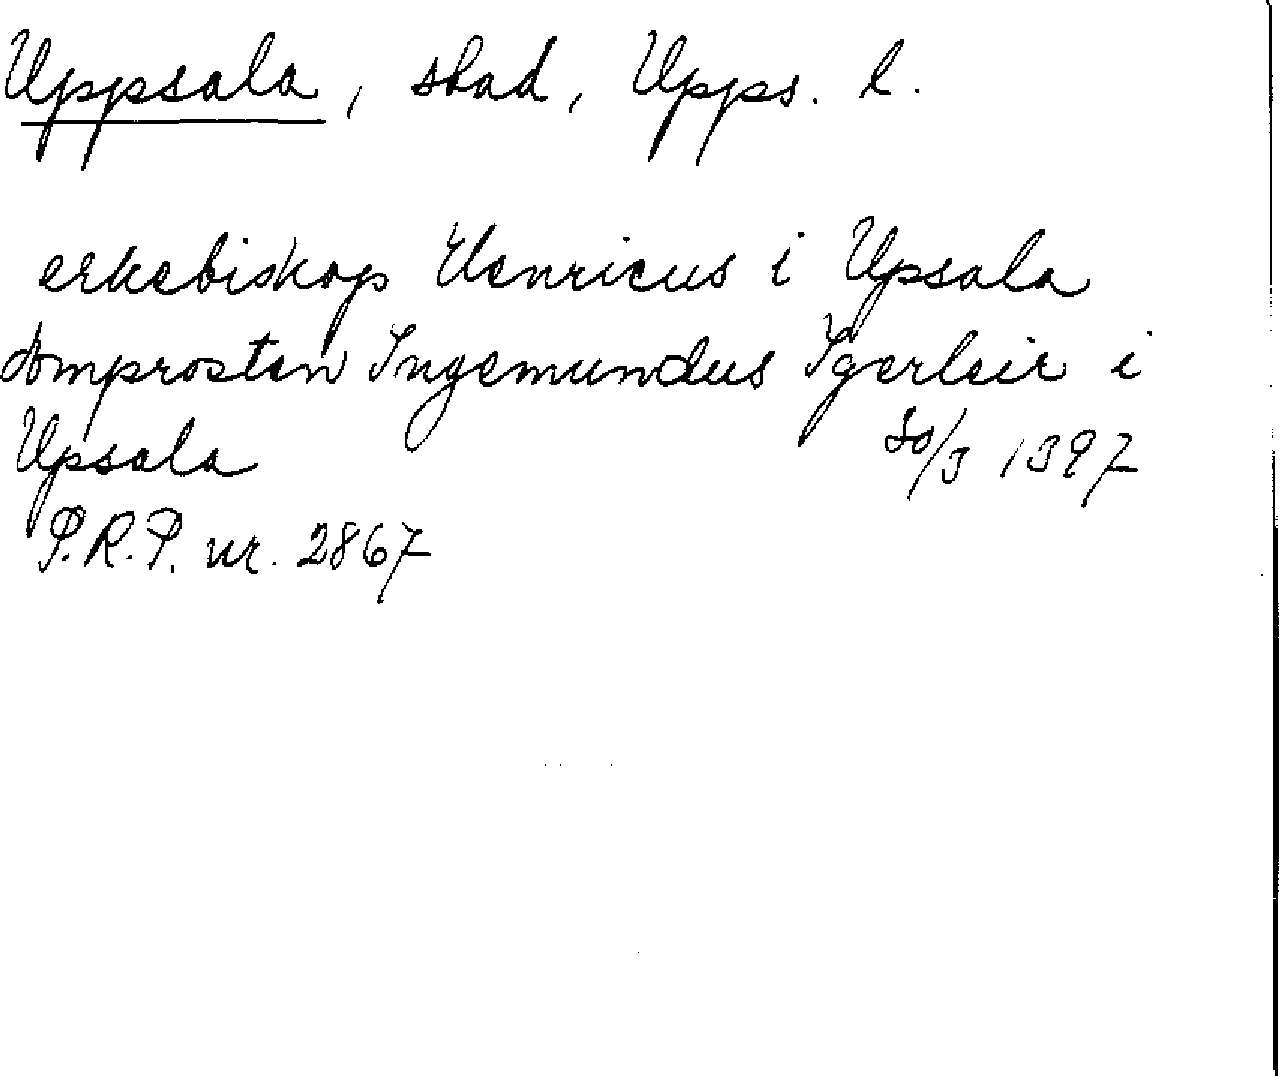 Uppsala, stad, Upps. l.
erkebiskop Henricus i Upsala
domprosten Ingemundus Igerleir i
Upsala 30/3 1397
P.R.P. nr. 2867